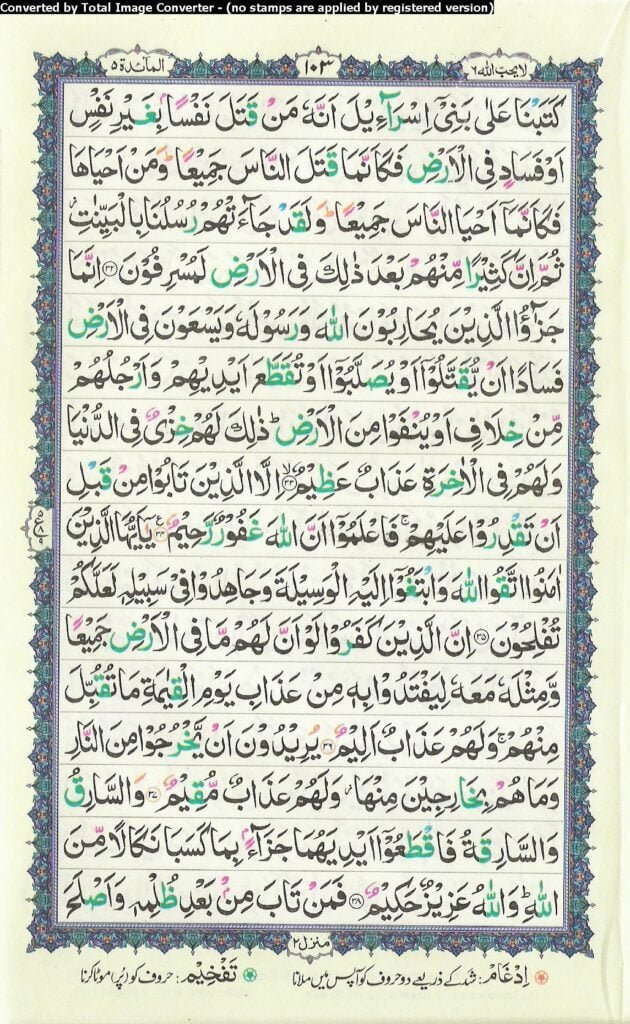 Converted by Total Image Converter - (no stamps are applied by registered version)
لا يحب الله ٦
١٠٣
المآئدة ٥
كَتَبْنَا عَلٰى بَنِىْۤ اِسْرَآءِيْلَ اَنَّهٗ مَنْ قَتَلَ نَفْسًۢا بِغَيْرِ نَفْسٍ
اَوْ فَسَادٍ فِى الْاَرْضِ فَكَاَنَّمَا قَتَلَ النَّاسَ جَمِيْعًا ؕ وَمَنْ اَحْيَاهَا
فَكَاَنَّمَاۤ اَحْيَا النَّاسَ جَمِيْعًا ؕ وَلَقَدْ جَآءَتْهُمْ رُسُلُنَا بِالْبَيِّنٰتِ ز
ثُمَّ اِنَّ كَثِيْرًا مِّنْهُمْ بَعْدَ ذٰلِكَ فِى الْاَرْضِ لَمُسْرِفُوْنَ ﴿۳۲﴾ اِنَّمَا
جَزٰٓؤُا الَّذِيْنَ يُحَارِبُوْنَ اللّٰهَ وَرَسُوْلَهٗ وَيَسْعَوْنَ فِى الْاَرْضِ
فَسَادًا اَنْ يُّقَتَّلُوْۤا اَوْ يُصَلَّبُوْۤا اَوْ تُقَطَّعَ اَيْدِيْهِمْ وَاَرْجُلُهُمْ
مِّنْ خِلَافٍ اَوْ يُنْفَوْا مِنَ الْاَرْضِ ؕ ذٰلِكَ لَهُمْ خِزْىٌ فِى الدُّنْيَا
وَلَهُمْ فِى الْاٰخِرَةِ عَذَابٌ عَظِيْمٌ ۙ﴿۳۳﴾ اِلَّا الَّذِيْنَ تَابُوْا مِنْ قَبْلِ
اَنْ تَقْدِرُوْا عَلَيْهِمْ ۚ فَاعْلَمُوْۤا اَنَّ اللّٰهَ غَفُوْرٌ رَّحِيْمٌ ﴿۳۴﴾ ع يٰۤاَيُّهَا الَّذِيْنَ
اٰمَنُوا اتَّقُوا اللّٰهَ وَابْتَغُوْۤا اِلَيْهِ الْوَسِيْلَةَ وَجَاهِدُوْا فِىْ سَبِيْلِهٖ لَعَلَّكُمْ
تُفْلِحُوْنَ ﴿۳۵﴾ اِنَّ الَّذِيْنَ كَفَرُوْا لَوْ اَنَّ لَهُمْ مَّا فِى الْاَرْضِ جَمِيْعًا
وَّمِثْلَهٗ مَعَهٗ لِيَفْتَدُوْا بِهٖ مِنْ عَذَابِ يَوْمِ الْقِيٰمَةِ مَا تُقُبِّلَ
مِنْهُمْ ۚ وَلَهُمْ عَذَابٌ اَلِيْمٌ ﴿۳۶﴾ يُرِيْدُوْنَ اَنْ يَّخْرُجُوْا مِنَ النَّارِ
وَمَا هُمْ بِخَارِجِيْنَ مِنْهَا ز وَلَهُمْ عَذَابٌ مُّقِيْمٌ ﴿۳۷﴾ وَالسَّارِقُ
وَالسَّارِقَةُ فَاقْطَعُوْۤا اَيْدِيَهُمَا جَزَآءًۢ بِمَا كَسَبَا نَكَالًا مِّنَ
اللّٰهِ ؕ وَاللّٰهُ عَزِيْزٌ حَكِيْمٌ ﴿۳۸﴾ فَمَنْ تَابَ مِنْۢ بَعْدِ ظُلْمِهٖ وَاَصْلَحَ
منزل ٢
اِدْغَام: شد کے ذریعے دو حروف کو آپس میں ملانا
تَفْخِيْم: حروف کو (پُر) موٹا کرنا